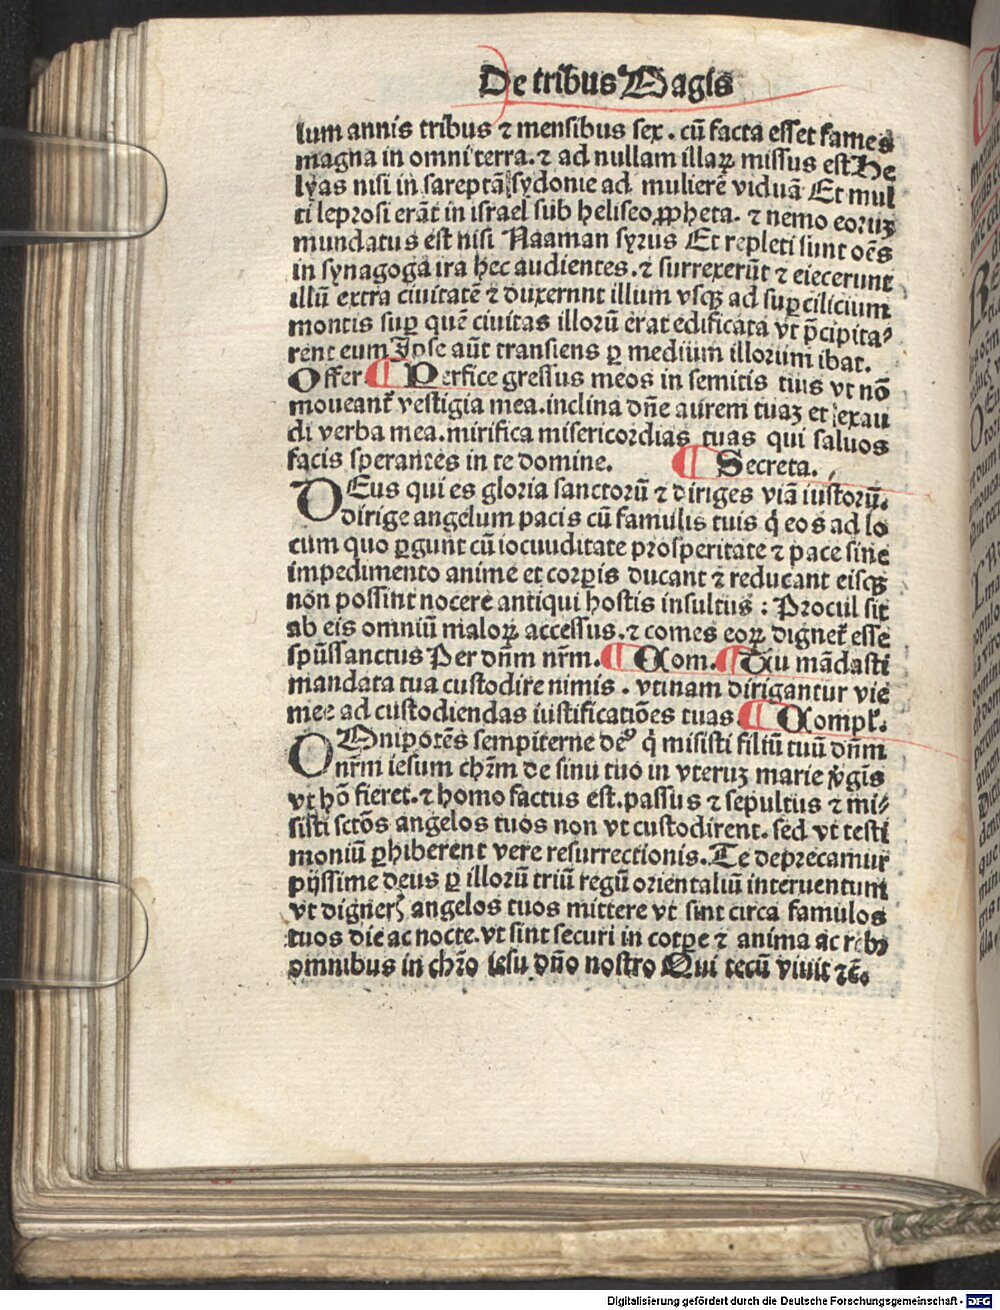 De tribus Magis
lum annis tribus ⁊ mensibus sex. cū facta esset fames
magna in omni terra. ⁊ ad nullam illaꝝ missus est He
lyas nisi in sareptā sydonie ad mulierē viduā Et mul
ti leprosi erāt in israel sub heliseo ꝓpheta. ⁊ nemo eoruꝫ
mundatus est nisi Naaman syrus Et repleti sunt oēs
in synagoga ira hec audientes. ⁊ surrexerūt ⁊ eiecerunt
illū extra ciuitatē ⁊ duxernnt illum vsqꝫ ad suꝑcilicium
montis suꝑ quē ciuitas illorū erat edificata vt p̄cipita⸗
rent eum Ipse aūt transiens ꝑ medium illorum ibat.
Offer ¶ Perfice gressus meos in semitis tuis vt nō
moueant᷑ vestigia mea. inclina dn̄e aurem tuaꝫ et exau
di verba mea. mirifica misericordias tuas qui saluos
facis sperantes in te domine. ¶ Secreta.
DEus qui es gloria sanctorū ⁊ diriges viā iustorū.
dirige angelum pacis cū famulis tuis q̇ eos ad lo
cum quo ꝑgunt cū iocuuditate prosperitate ⁊ pace sine
impedimento anime et corꝑis ducant ⁊ reducant eisqꝫ
non possint nocere antiqui hostis insultus : Procul sit
ab eis omniū maloꝝ accessus. ⁊ comes eoꝝ dignet᷑ esse
spūssanctus Per dn̄m nr̄m. ¶ Com. ¶ Tu mādasti
mandata tua custodire nimis. vtinam dirigantur vie
mee ad custodiendas iustificatiōes tuas ¶ Compl᷑.
OMnipotēs sempiterne deꝰ q̇ misisti filiū tuū dn̄m
nr̄m iesum chr̄m de sinu tuo in vteruꝫ marie v̇gīs
vt hō fieret. ⁊ homo factus est. passus ⁊ sepultus ⁊ mi⸗
sisti sctōs angelos tuos non vt custodirent. sed vt testi
moniū ꝑhiberent vere resurrectionis. Te deprecamur
pijssime deus ꝑ illorū triū regū orientaliū interuentum
vt digneris angelos tuos mittere vt sint circa famulos
tuos die ac nocte. vt sint securi in corꝑe ⁊ anima ac rebꝫ
omnibus in chr̄o iesu dn̄o nostro Qui tecū viuit ⁊c̄.
Digitalisierung gefördert durch die Deutsche Forschungsgemeinschaft - DFG